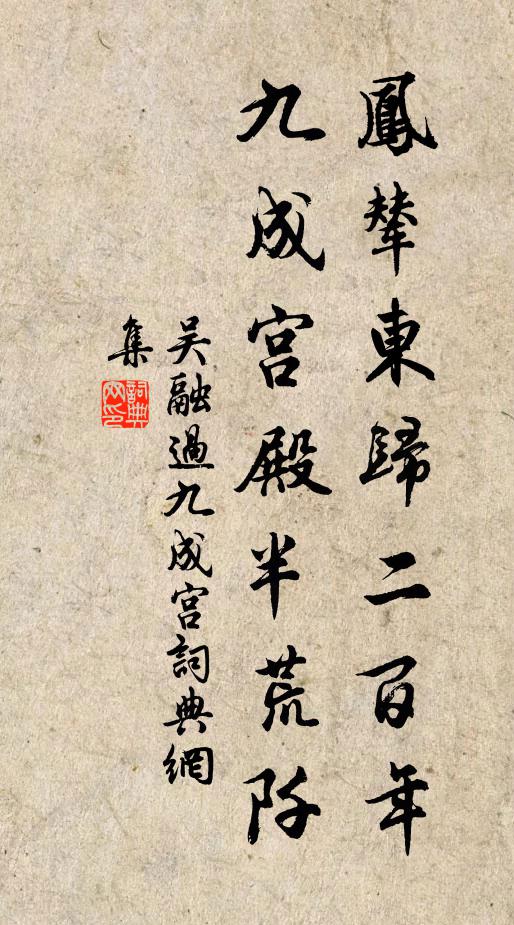 鳳輦東歸二百年
九成宮殿半荒阡
吳融過九成宮詞典網
集
詞典
网印